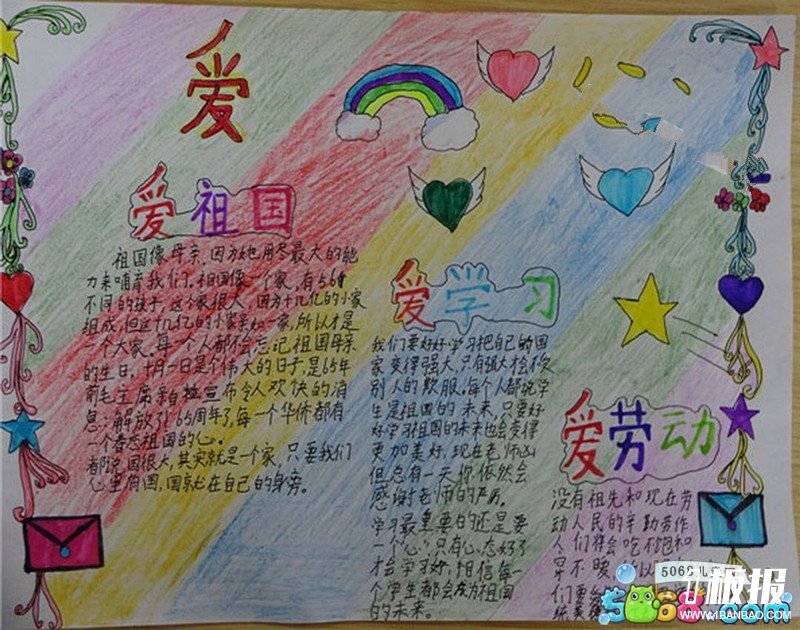 爱
爱祖国
祖国像母亲,因为她用尽最大的能
力来哺育我们。祖国像一个家,有56个
不同的孩子,这个家很大,因为十几亿的小家
组成,但这十几亿的小家亲如一家,所以才是
一个大家。每一个人都不会忘记祖国母亲
的生日,十月一日是个伟大的日子,是65年
前毛主席亲自宣布令人欢快的消
息:解放了!65周年了,每一个华侨都有
一个眷恋祖国的心。
都说国很大,其实就是一个家,只要我们
心里有国,国就在自己的身旁。
爱学习
我们要好好学习把自己的国
家变得强大,只有强大才会不
别人的欺服。每个人都说学
生是祖国的未来,只要好
好学习祖国的未来也会变得
更加美好,现在老师凶
但总有一天你依然会
感谢老师的严厉。
学习最重要的还是要
一个“心”只有心态好了
才会学习好,相信每一
个学生都会成为祖国
的未来。
爱劳动
没有祖先和现在劳
动人民的辛勤劳作
人们将会吃不饱和
穿不暖,所以
们要
5068儿
5068.com
极报
WWW.1BANBAO.COM